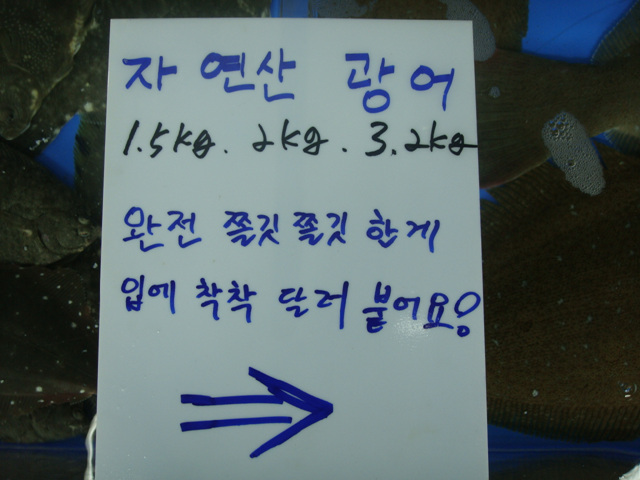 자연산 광어
1.5kg. 2kg. 3.2kg
완전 쫄깃쫄깃 한게
입에 착착 달러 붙어요!